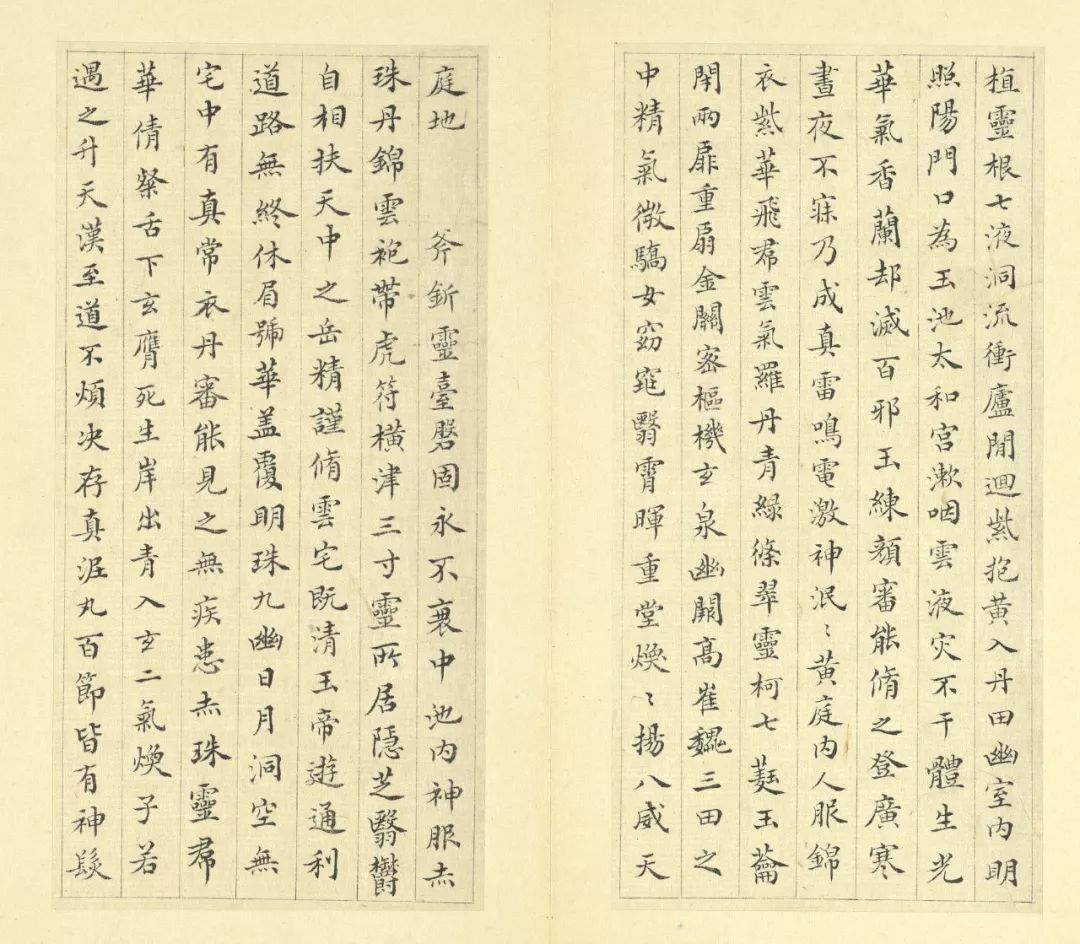 植靈根七液洞流衝廬閒迴紫抱黃入丹田幽室內明
照陽門口為玉池太和宮漱咽雲液灾不干體生光
華氣香蘭却滅百邪玉練顏審能脩之登廣寒
晝夜不寐乃成真雷鳴電激神泯〻黃庭內人服錦
衣紫華飛帬雲氣羅丹青綠條翠靈柯七蕤玉籥
閇兩扉重扇金關密樞機玄泉幽闕高崔巍三田之
中精氣微驕女窈窕翳霄暉重堂煥〻揚八威天
庭地 斧釿靈臺磐固永不衰中池內神服赤
珠丹錦雲袍帶虎符橫津三寸靈所居隱芝翳欝
自相扶天中之岳精謹脩雲宅既清玉帝遊通利
道路無終休眉號華盖覆明珠九幽日月洞空無
宅中有真常衣丹審能見之無疾患赤珠靈帬
華倩粲舌下玄膺死生岸出青入玄二氣煥子若
遇之升天漢至道不煩决存真泥丸百節皆有神髮